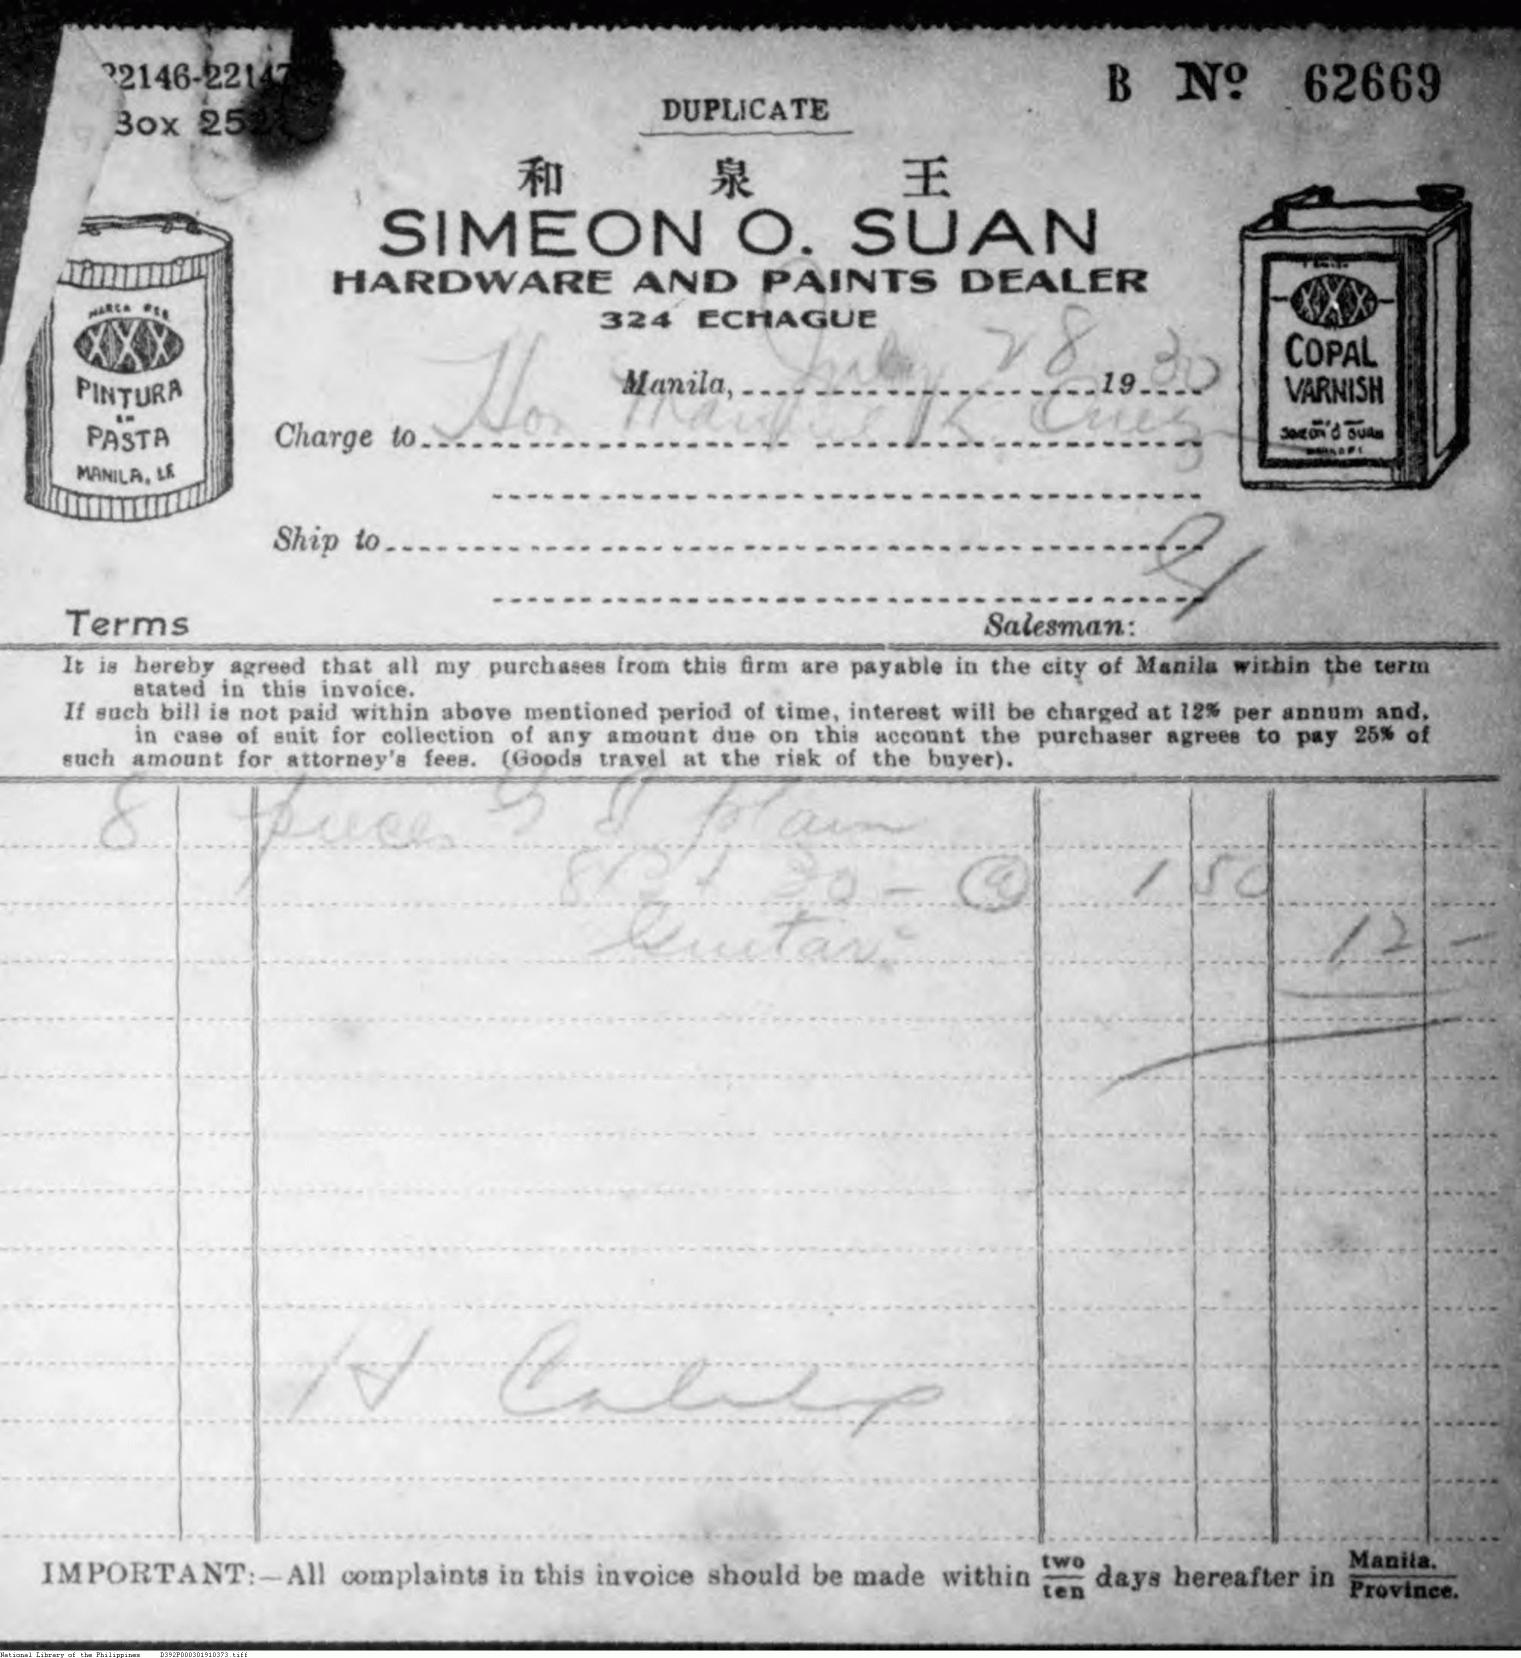 22146-22147
B No. 62669
Box 252
DUPLICATE
和 泉 王
SIMEON O. SUAN
HARDWARE AND PAINTS DEALER
324 ECHAGUE
MARCA
PINTURA
EN
PASTA
MANILA,
COPAL
VARNISH
SIMEON O SUAN
Manila, July 28 1930
Charge to Hon K Cruz
Ship to
Terms Salesman:
It is hereby agreed that all my purchases from this firm are payable in the city of Manila within the term
stated in this invoice.
If such bill is not paid within above mentioned period of time, interest will be charged at 12% per annum and,
in case of suit for collection of any amount due on this account the purchaser agrees to pay 25% of
such amount for attorney's fees. (Goods travel at the risk of the buyer).
8 pieces G I plain
8 30 - @ 1 50
12 -
H
IMPORTANT:—All complaints in this invoice should be made within two ten days hereafter in Manila. Province.
National Library of the Philippines D392P000301910373.tiff